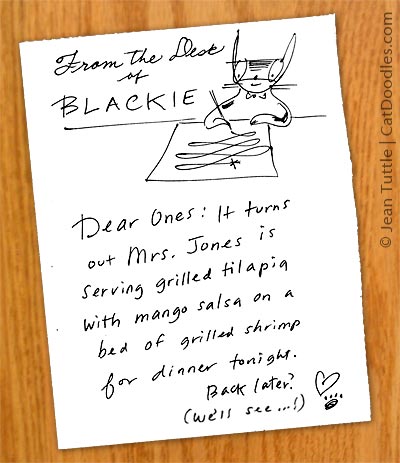 From the Desk
of
BLACKIE
Dear Ones: It turns
out Mrs. Jones is
serving grilled tilapia
with mango salsa on a
bed of grilled shrimp
for dinner tonight.
Back later?
(we'll see...!)
© Jean Tuttle | CatDoodles.com